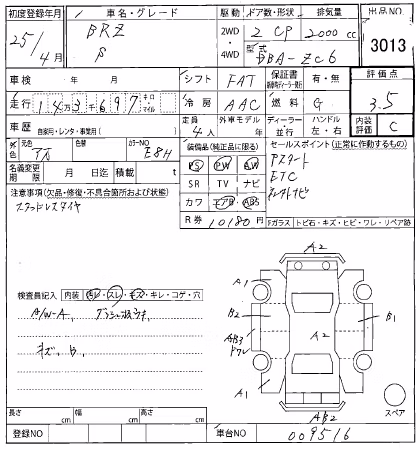 初度登録年月 車名・グレード 駆動 ドア数・形状 排気量 出品NO
25/4月 BRZ 2WD・4WD 2 CP 2000 cc 3013
型式 DBA-ZC6
車検 年 月 シフト FAT 保証書 有・無 評価点
走行 14万3千697 キロ・マイル 冷房 AAC 燃料 G 3.5
車歴 自家用・レンタ・事業用( ) 定員 4人 外車モデル 年 ディーラー・並行 ハンドル 左・右 内装評価 C
色 元色 色替 カラーNO E8H
装備品(純正品に限る) セールスポイント(正常に作動するもの)
名義変更期限 月 日迄 積載 t
PS PW AW
アスクート
SR TV ナビ
ETC
カワ エアB ABS
R券 10180円
注意事項(欠品・修復・不具合箇所および状態)
スタッドレスタイヤ
Fガラス トビ石・キズ・ヒビ・ワレ・リペア跡
検査員記入 内装 汚レ・スレ・キズ・キレ・コゲ・穴
A/W-A,
キズ、
A2
A1
B2
AB3
ワレ
A2
B1
A1
AB2
スペア
長さ cm 幅 cm 高さ cm
登録NO 車台NO 009516